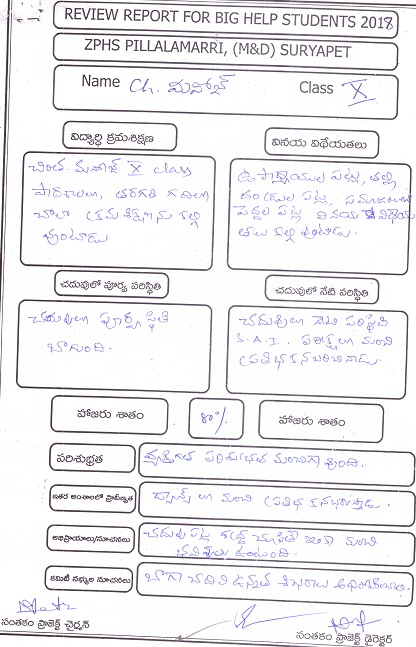 REVIEW REPORT FOR BIG HELP STUDENTS 2018
ZPHS PILLALAMARRI, (M&D) SURYAPET
Name Ch. మనోజ్ Class X
విద్యార్ధి క్రమశిక్షణ
వినయ విధేయతలు
చింత. మనోజ్ X class
పాఠశాల, తరగతి గదిలో
చాలా క్రమశిక్షణను కల్గి
వుంటాడు
ఉపాధ్యాయుల పట్ల, తల్లి
దండ్రుల పట్ల, సమాజంలో
పెద్దల పట్ల వినయ విధేయ
తలు కల్గి ఉంటాడు.
చదువులో పూర్వ పరిస్థితి
చదువులో నేటి పరిస్థితి
చదువులో పూర్వ స్థితి
బాగుంది.
చదువులో నేటి పరిస్థితి
S.A.I. పరీక్షల్లో మంచి
ప్రతిభ కనబరిచినాడు.
హాజరు శాతం
80%
హాజరు శాతం
పరిశుభ్రత
వ్యక్తిగత పరిశుభ్రత మంచిగా వుంది.
ఇతర అంశాలలో ప్రావీణ్యత
డ్యాన్స్ లో మంచి ప్రతిభ కనబరుస్తాడు.
అభిప్రాయాలు/సూచనలు
చదువు పట్ల శ్రద్ధ చూపితే ఇంకా మంచి
భవిష్యత్తు ఉంటుంది.
కమిటీ సభ్యుల సూచనలు
బాగా చదివి ఉన్నత శిఖరాలు అధిరోహించాలి.
సంతకం ప్రాజెక్ట్ చైర్మన్
సంతకం ప్రాజెక్ట్ డైరెక్టర్